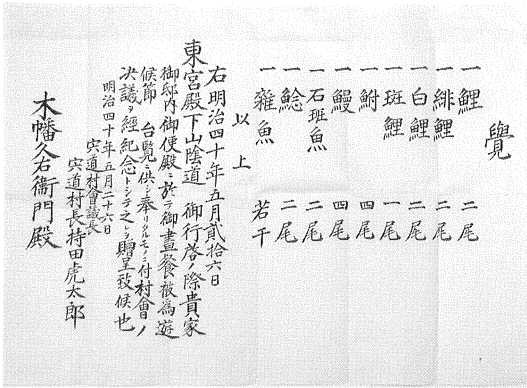 覺
一 鯉 二尾
一 緋鯉 二尾
一 白鯉 二尾
一 斑鯉 一尾
一 鮒 四尾
一 鰻 四尾
一 石斑魚 二尾
一 鯰 二尾
一 雜魚 若干
以上
右明治四十年五月貳拾六日
東宮殿下山陰道 御行啓ノ際貴家
御邸内御便殿ニ於テ御晝餐被為遊
候節 台覧ニ供シ奉リタルモノニ付村會ノ
決議ヲ經紀念トシテ之レヲ贈呈致候也
明治四十年五月二十六日
宍道村會議長
宍道村長持田虎太郎
木幡久右衞門殿